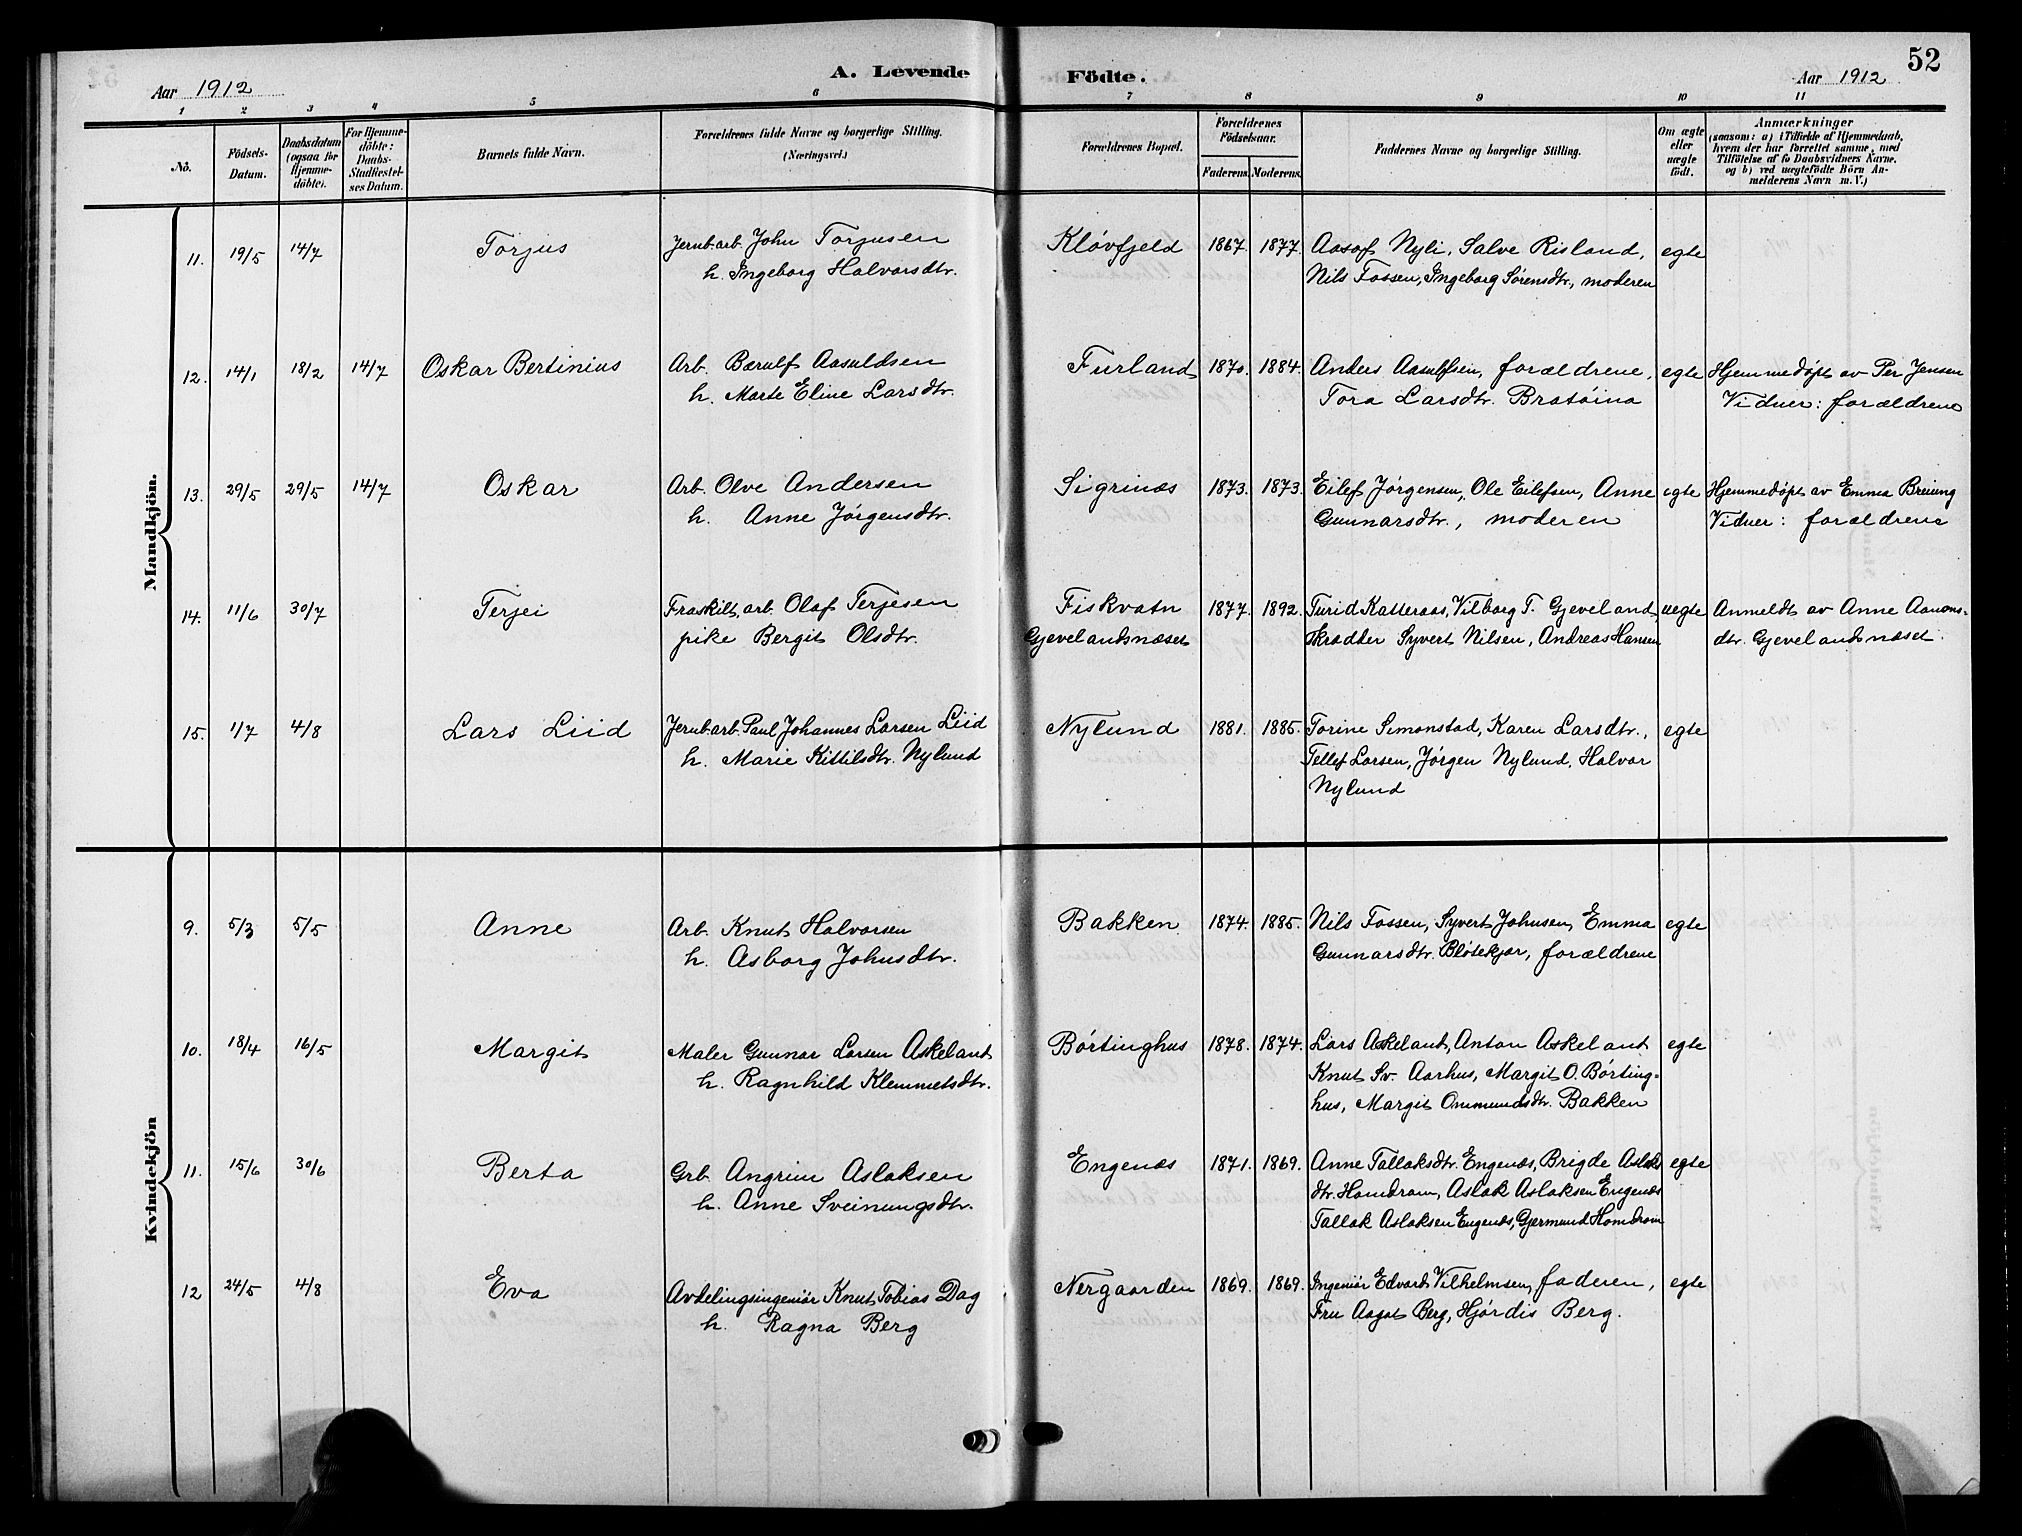 52
Aar 1912
A. Levende Födte.
Aar 1912
1 2 3 4 5 6 7 8 9 10 11
Nô.
Födsels-Datum.
Daabsdatum (ogsaa for Hjemme-döbte).
For Hjemme-döbte: Daabs-Stadfæstel-ses Datum.
Barnets fulde Navn.
Forældrenes fulde Navne og borgerlige Stilling. (Næringsvei.)
Forældrenes Bopæl.
Forældrenes Födselsaar.
Faderens. Moderens.
Faddernes Navne og borgerlige Stilling.
Om ægte eller uægte födt.
Anmærkninger
(saasom: a) i Tilfælde af Hjemmedaab,
hvem der har forrettet samme, med
Tilföielse af to Daabsvidners Navne.
og b) ved uægtefödte Börn An-
melderens Navn m. V.)
Mandkjön.
11. 19/5 14/7 Torjus Jernb.arb. John Torjusen Kløvfjeld 1867. 1877. Aasof Nyli, Salve Risland, egte
h. Ingeborg Halvorsdtr. Nils Fossen, Ingeborg Sørensdtr., moderen
12. 14/1 18/2 14/7 Oskar Bertinius Arb. Bærulf Aasuldsen Furland 1870. 1884. Anders Aasulfsen, forældrene, egte Hjemmedøpt av Per Jensen
h. Marte Eline Larsdtr. Tora Larsdtr. Bratøina Vidner: forældrene
13. 29/5 29/5 14/7 Oskar Arb. Olve Andersen Sigrinæs 1873. 1873. Eilef Jørgensen, Ole Eilefsen, Anne egte Hjemmedøpt av Emma Breiung
h. Anne Jørgensdtr. Gunnarsdtr., moderen Vidner: forældrene
14. 11/6 30/7 Terjei Fraskilt, arb. Olaf Terjesen Fiskvatn 1877. 1892. Turid Katteraas, Vilborg T. Gjeveland, uegte Anmeldt av Anne Aanons-
pike Bergit Olsdtr. Gjevelandsnæset Skrædder Syvert Nilsen, Andreas Hansen dtr. Gjevelandsnæset.
15. 1/7 4/8 Lars Liid Jernb.arb. Paul Johannes Larsen Liid Nylund 1881. 1885. Torine Simonstad, Karen Larsdtr., egte
h. Marie Kittilsdtr. Nylund Tellef Larsen, Jørgen Nylund, Halvor
Nylund
Kvindekjön
9. 5/3 5/5 Anne Arb. Knut Halvorsen Bakken 1874. 1885. Nils Fossen, Syvert Johnsen, Emma egte
h. Asborg Johnsdtr. Gunnarsdtr. Bløsekjær, forældrene
10. 18/4 16/5 Margit Maler Gunnar Larsen Askeland Børtinghus 1878. 1874. Lars Askeland, Anton Askeland egte
h. Ragnhild Klemmetsdtr. Knut Sv. Aarhus, Margit O. Børting-
hus, Margit Ommundsdtr. Bakken
11. 15/6 30/6 Berta Grb. Angrim Aslaksen Engenæs 1871. 1869. Anne Tallaksdtr. Engenæs, Brigde Aslaks egte
h. Anne Sveinungsdtr. dtr. Homdrom, Aslak Aslaksen Engenæs
Tallak Aslaksen Engenæs, Gjermund Homdrom
12 24/5 4/8 Eva Avdelingsingeniør Knut Tobias Dag Nergaarden 1869. 1869. Ingeniør Edvard Vilhelmsen, faderen, egte
h. Ragna Berg Fru Aagot Berg, Hjørdis Berg.